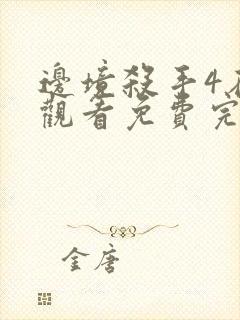 邊境殺手4
觀看免費完
金唐